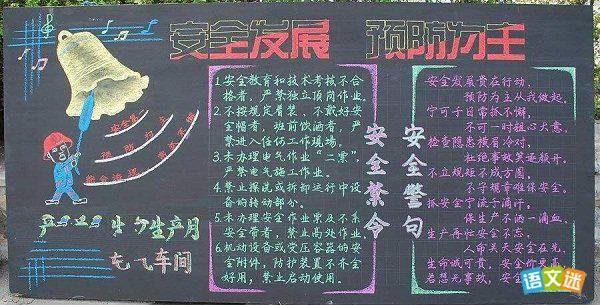 安全发展 预防为主
1.安全教育和技术考核不合
格者,严禁独立顶岗作业。
2.不按规定着装、不戴好安
全帽者,班前饮酒者,严
禁进入任何工作现场。
3.未办理电气作业“二票”,
严禁电气施工作业。
4.禁止摸洗或拆卸运行中设
备的转动部分。
5.未办理安全作业票及不系
安全带者,禁止高处作业。
6.机动设备或受压容器的安
全附件,防护装置不齐全
好用,禁止启动使用。
安全禁令
安全警句
安全发展贵在行动,
预防为主从我做起。
宁可千日常抓不懈,
不可一时粗心大意。
检查隐患横眉冷对,
杜绝事故笑逐颜开。
不立规矩不成方圆,
不守规章难保安全。
抓安全宁流千滴汗,
保生产不洒一滴血。
生产再忙安全不忘,
人命关天安全在先。
生命诚可贵,安全价更高,
若想无事故,
生产月
车间
语文迷